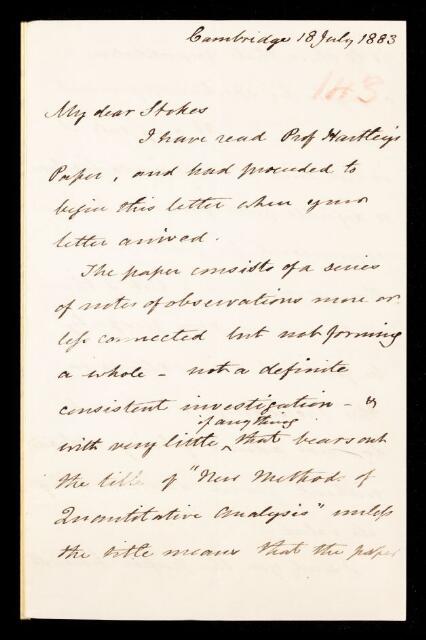 Cambridge 18 July 1883
143
My dear Stokes
I have read Prof Hartley's
Paper, and had proceeded to
begin this letter when your
letter arrived.
The paper consists of a series
of notes of observations more or
less connected but not forming
a whole – not a definite
consistent investigation – &
if anything
with very little ^ that bears out
the title of "New Methods of
Quantitative Analysis" unless
the title means that the paper